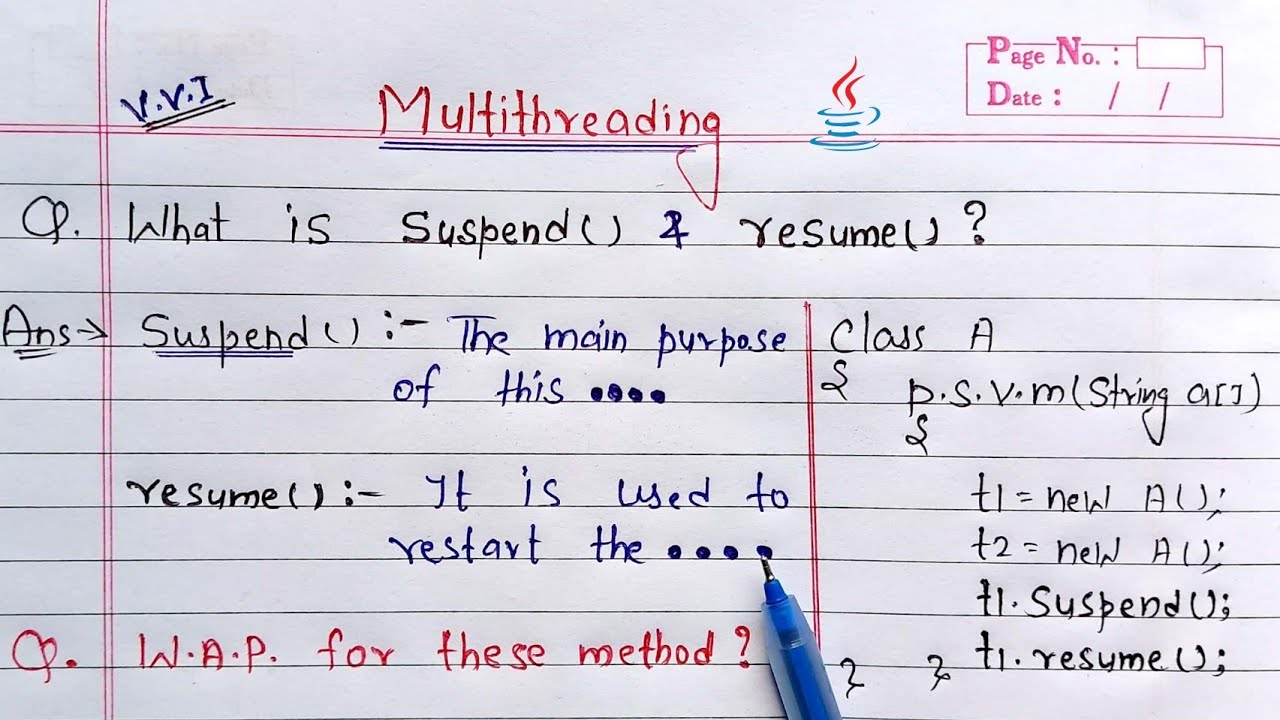 Page No. :
Date : / /
V.V.I
Multithreading
Q. What is Suspend() & resume()?
Ans → Suspend() :- The main purpose
of this ....
resume() :- It is used to
restart the ....
Q. W.A.P. for these method ?
Class A
{
p.s.v.m(String a[])
{
t1 = new A();
t2 = new A();
t1.Suspend();
t1.resume();
} }